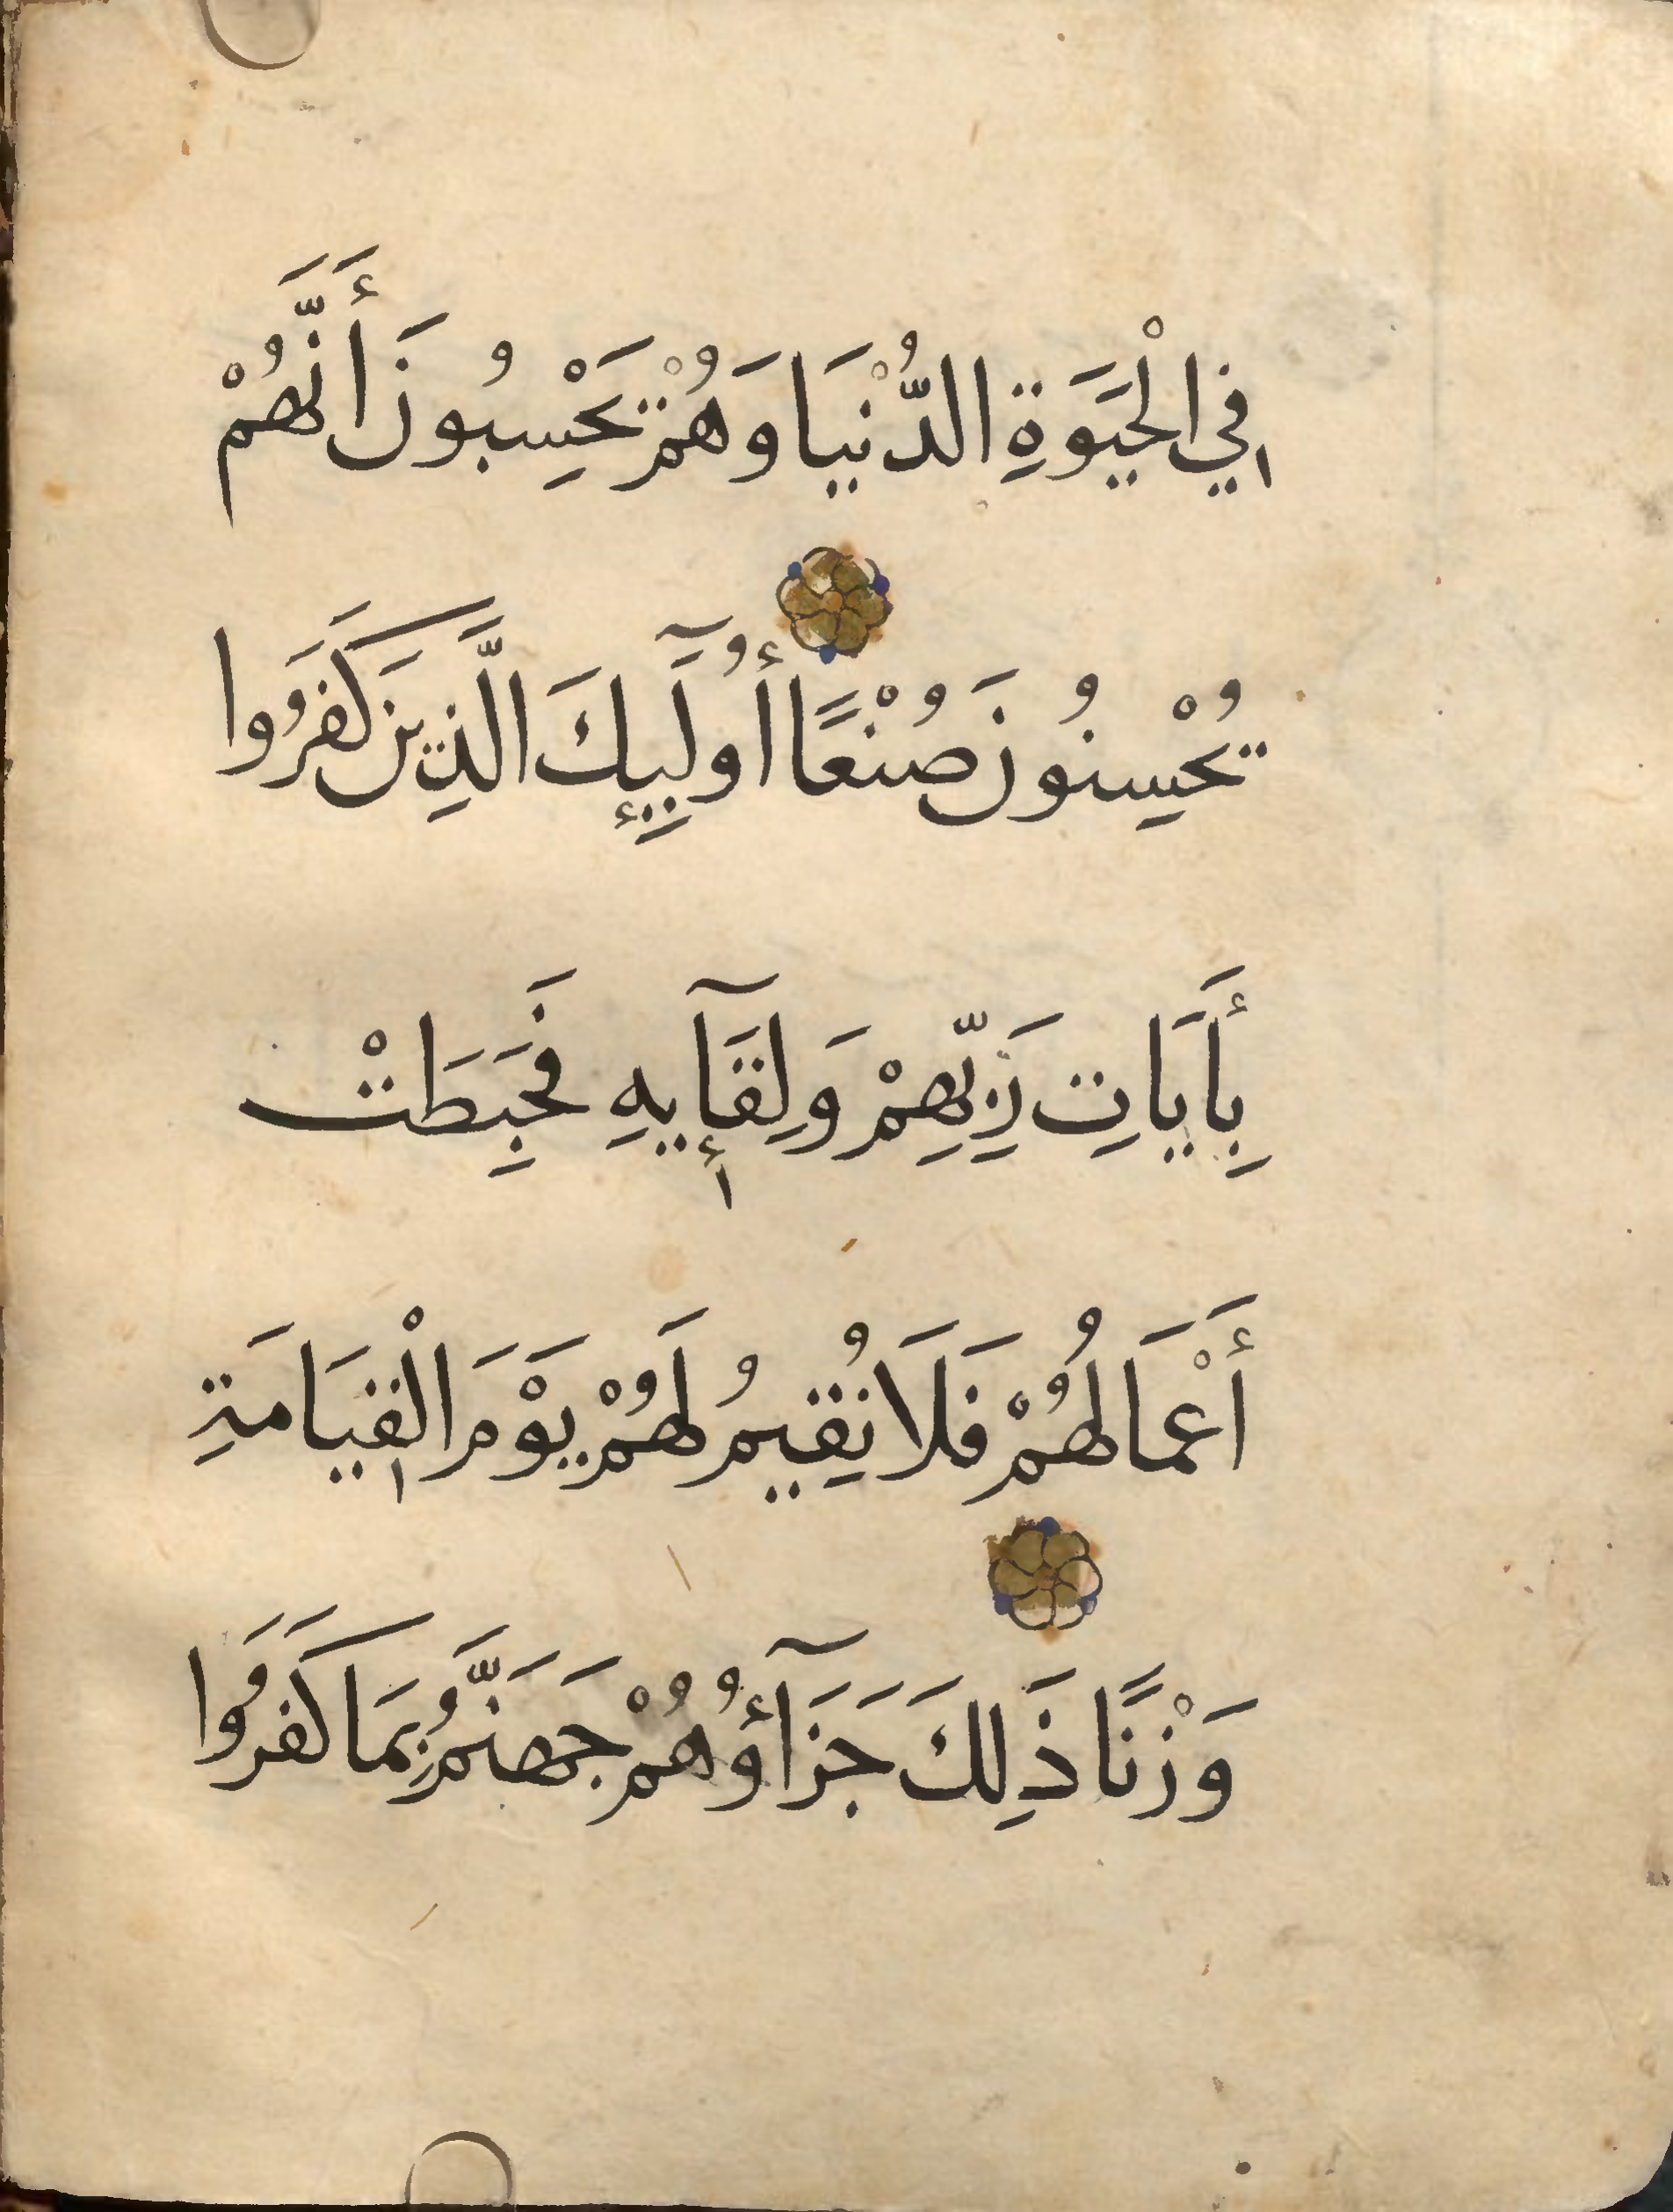 فِي الْحَيَوةِ الدُّنْيَا وَهُمْ يَحْسِبُونَ أَنَّهُمْ
يُحْسِنُونَ صُنْعًا أُولَٓئِكَ الَّذِينَ كَفَرُوا
بِأَيَاتِ رَبِّهِمْ وَلِقَآيِهِ فَحَبِطَتْ
أَعْمَالُهُمْ فَلَا نُقِيمُ لَهُمْ يَوْمَ الْقِيَامَةِ
وَزْنًا ذَلِكَ جَزَآؤُهُمْ جَهَنَّمُ بِمَا كَفَرُوا